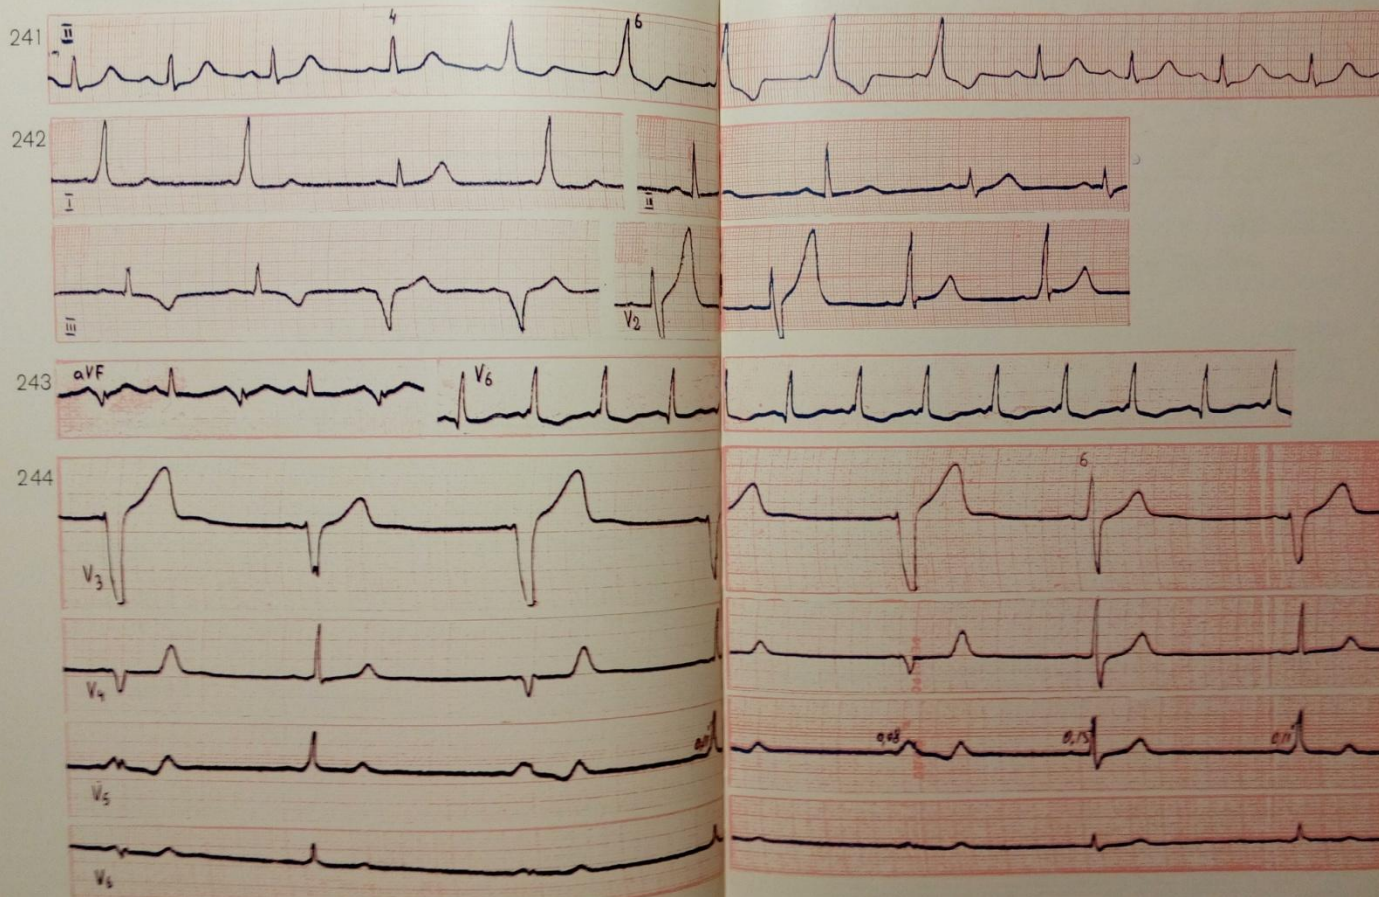 241 II 4 6
242 I II
III V2
243 aVF V6
244 6
V3
V4
V5 0,08 0,13
V6